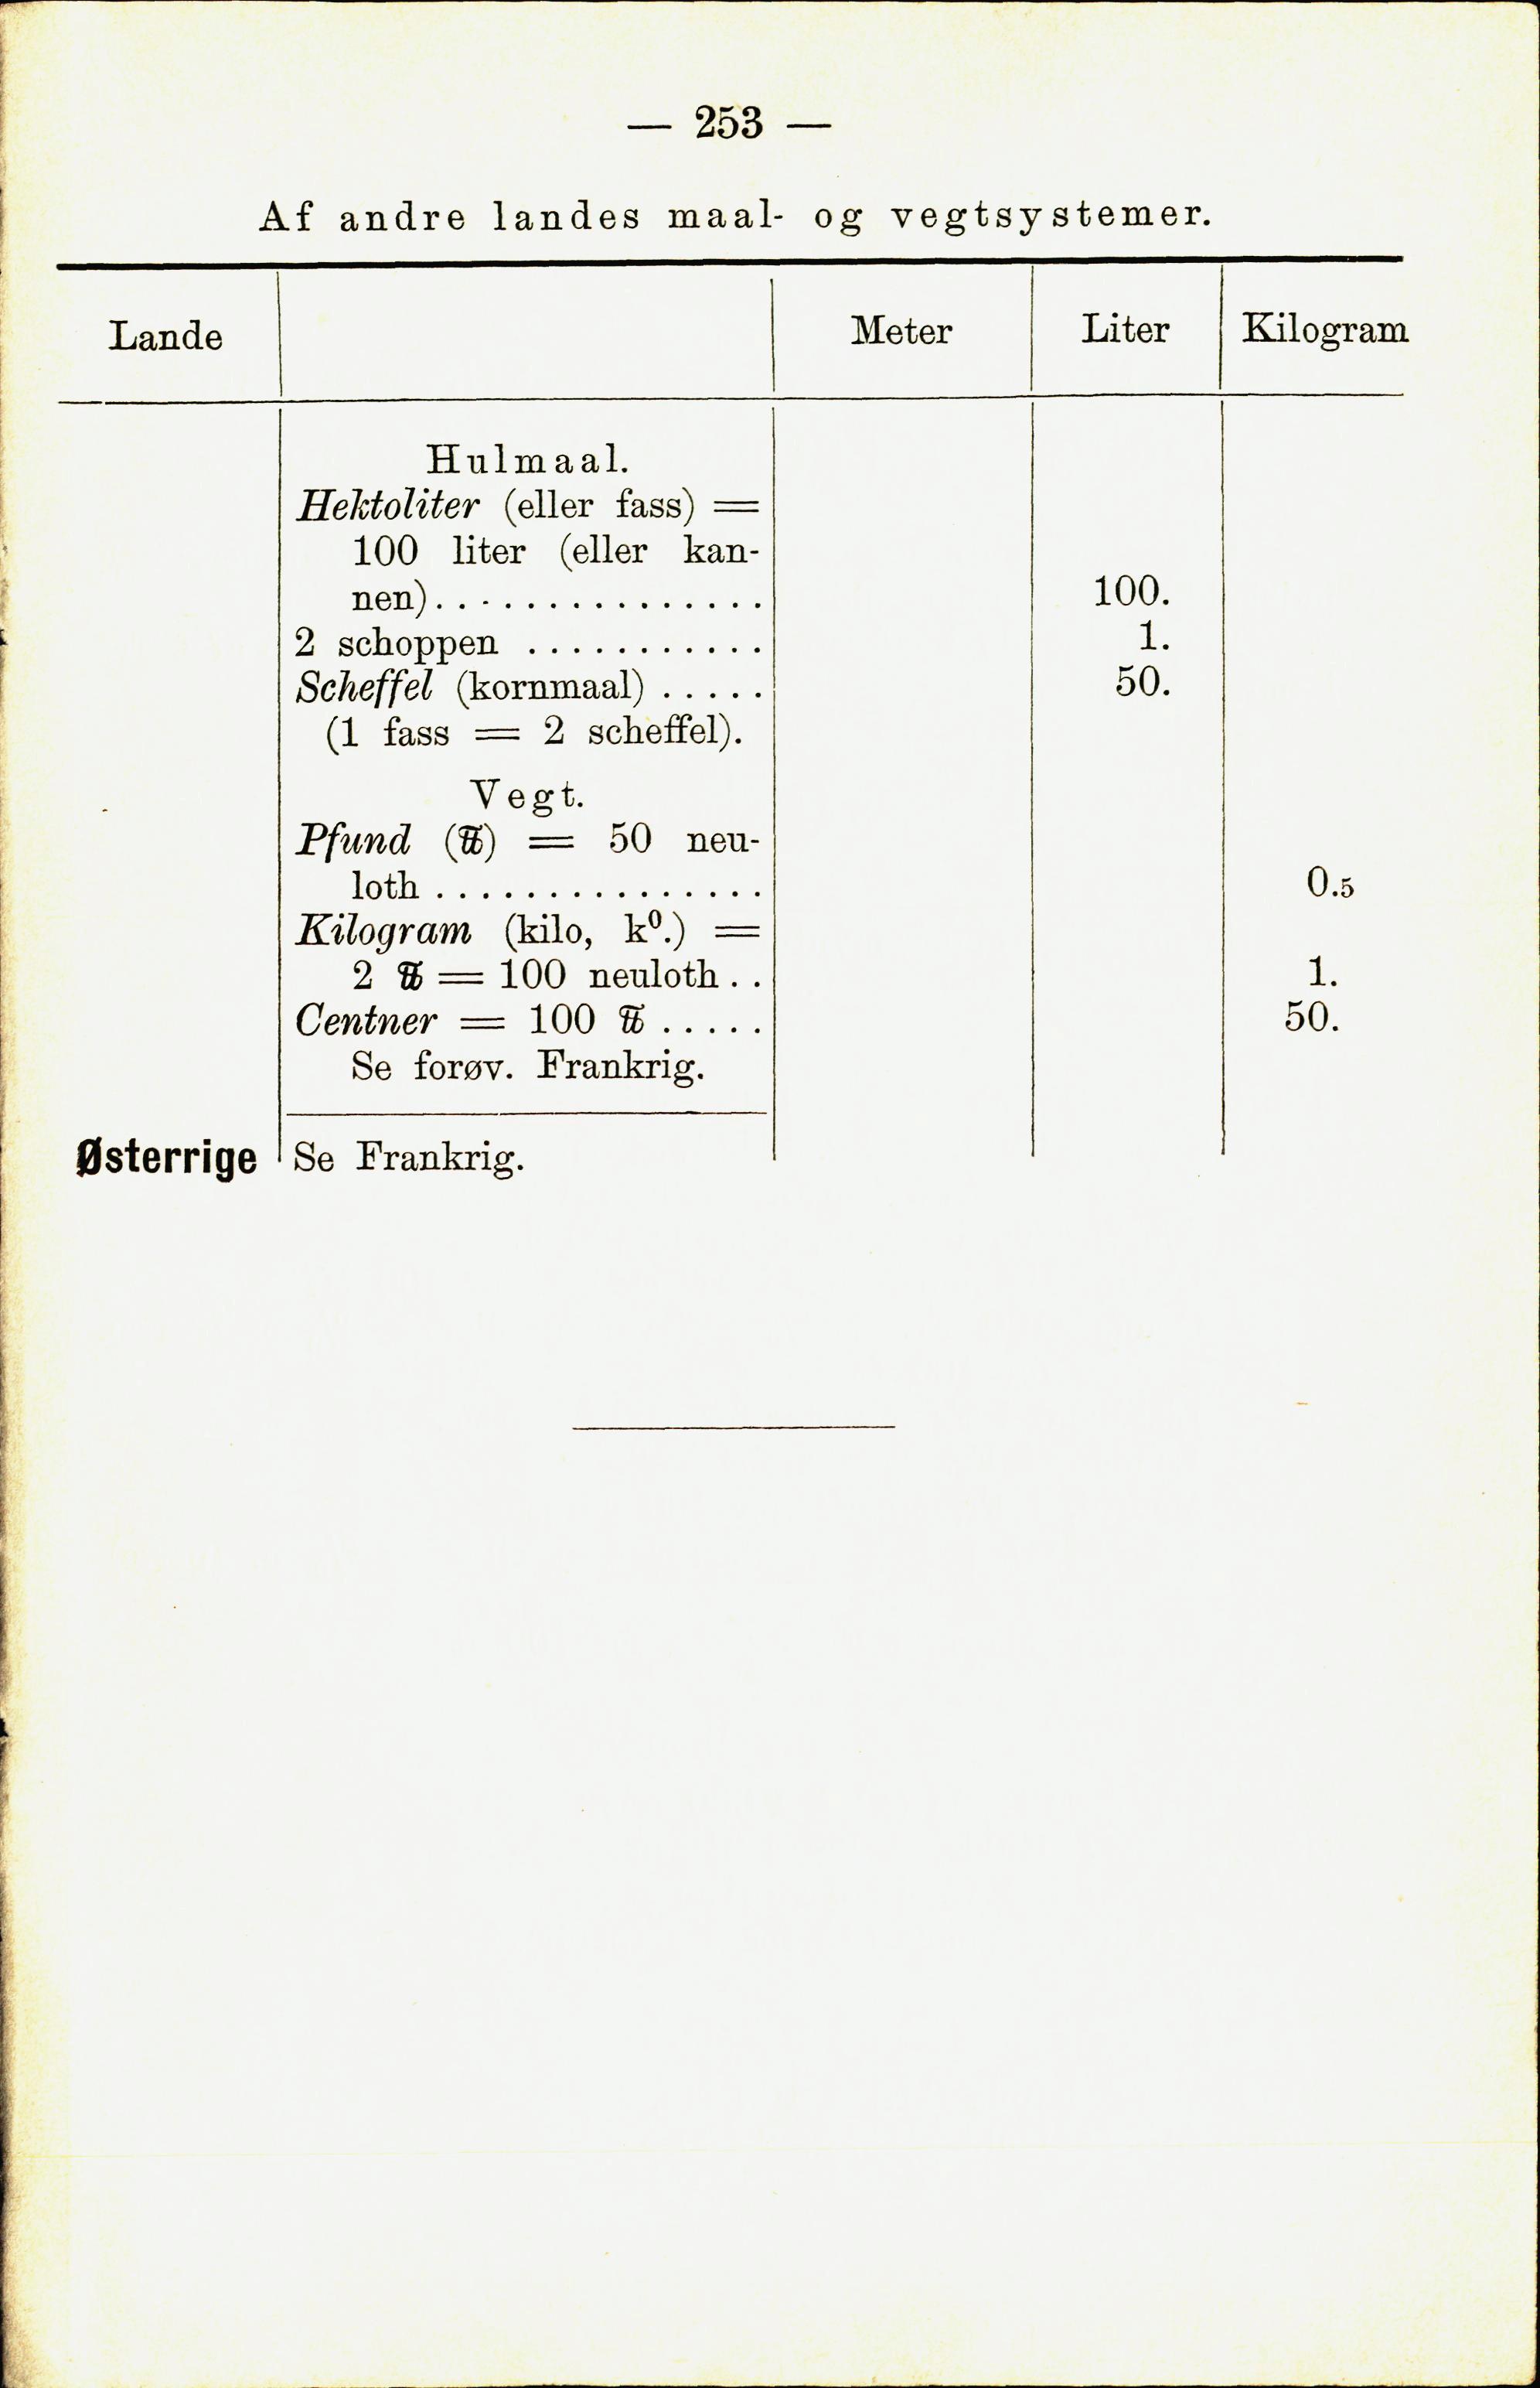 — 253 —
Af andre landes maal- og vegtsystemer.
Lande Meter Liter Kilogram
Hulmaal.
Hektoliter (eller fass) =
100 liter (eller kan-
nen)................ 100.
2 schoppen ........... 1.
Scheffel (kornmaal) ..... 50.
(1 fass = 2 scheffel).
Vegt.
Pfund (℔) = 50 neu-
loth ............... 0.5
Kilogram (kilo, k⁰.) =
2 ℔ = 100 neuloth.. 1.
Centner = 100 ℔ ..... 50.
Se forøv. Frankrig.
Østerrige Se Frankrig.